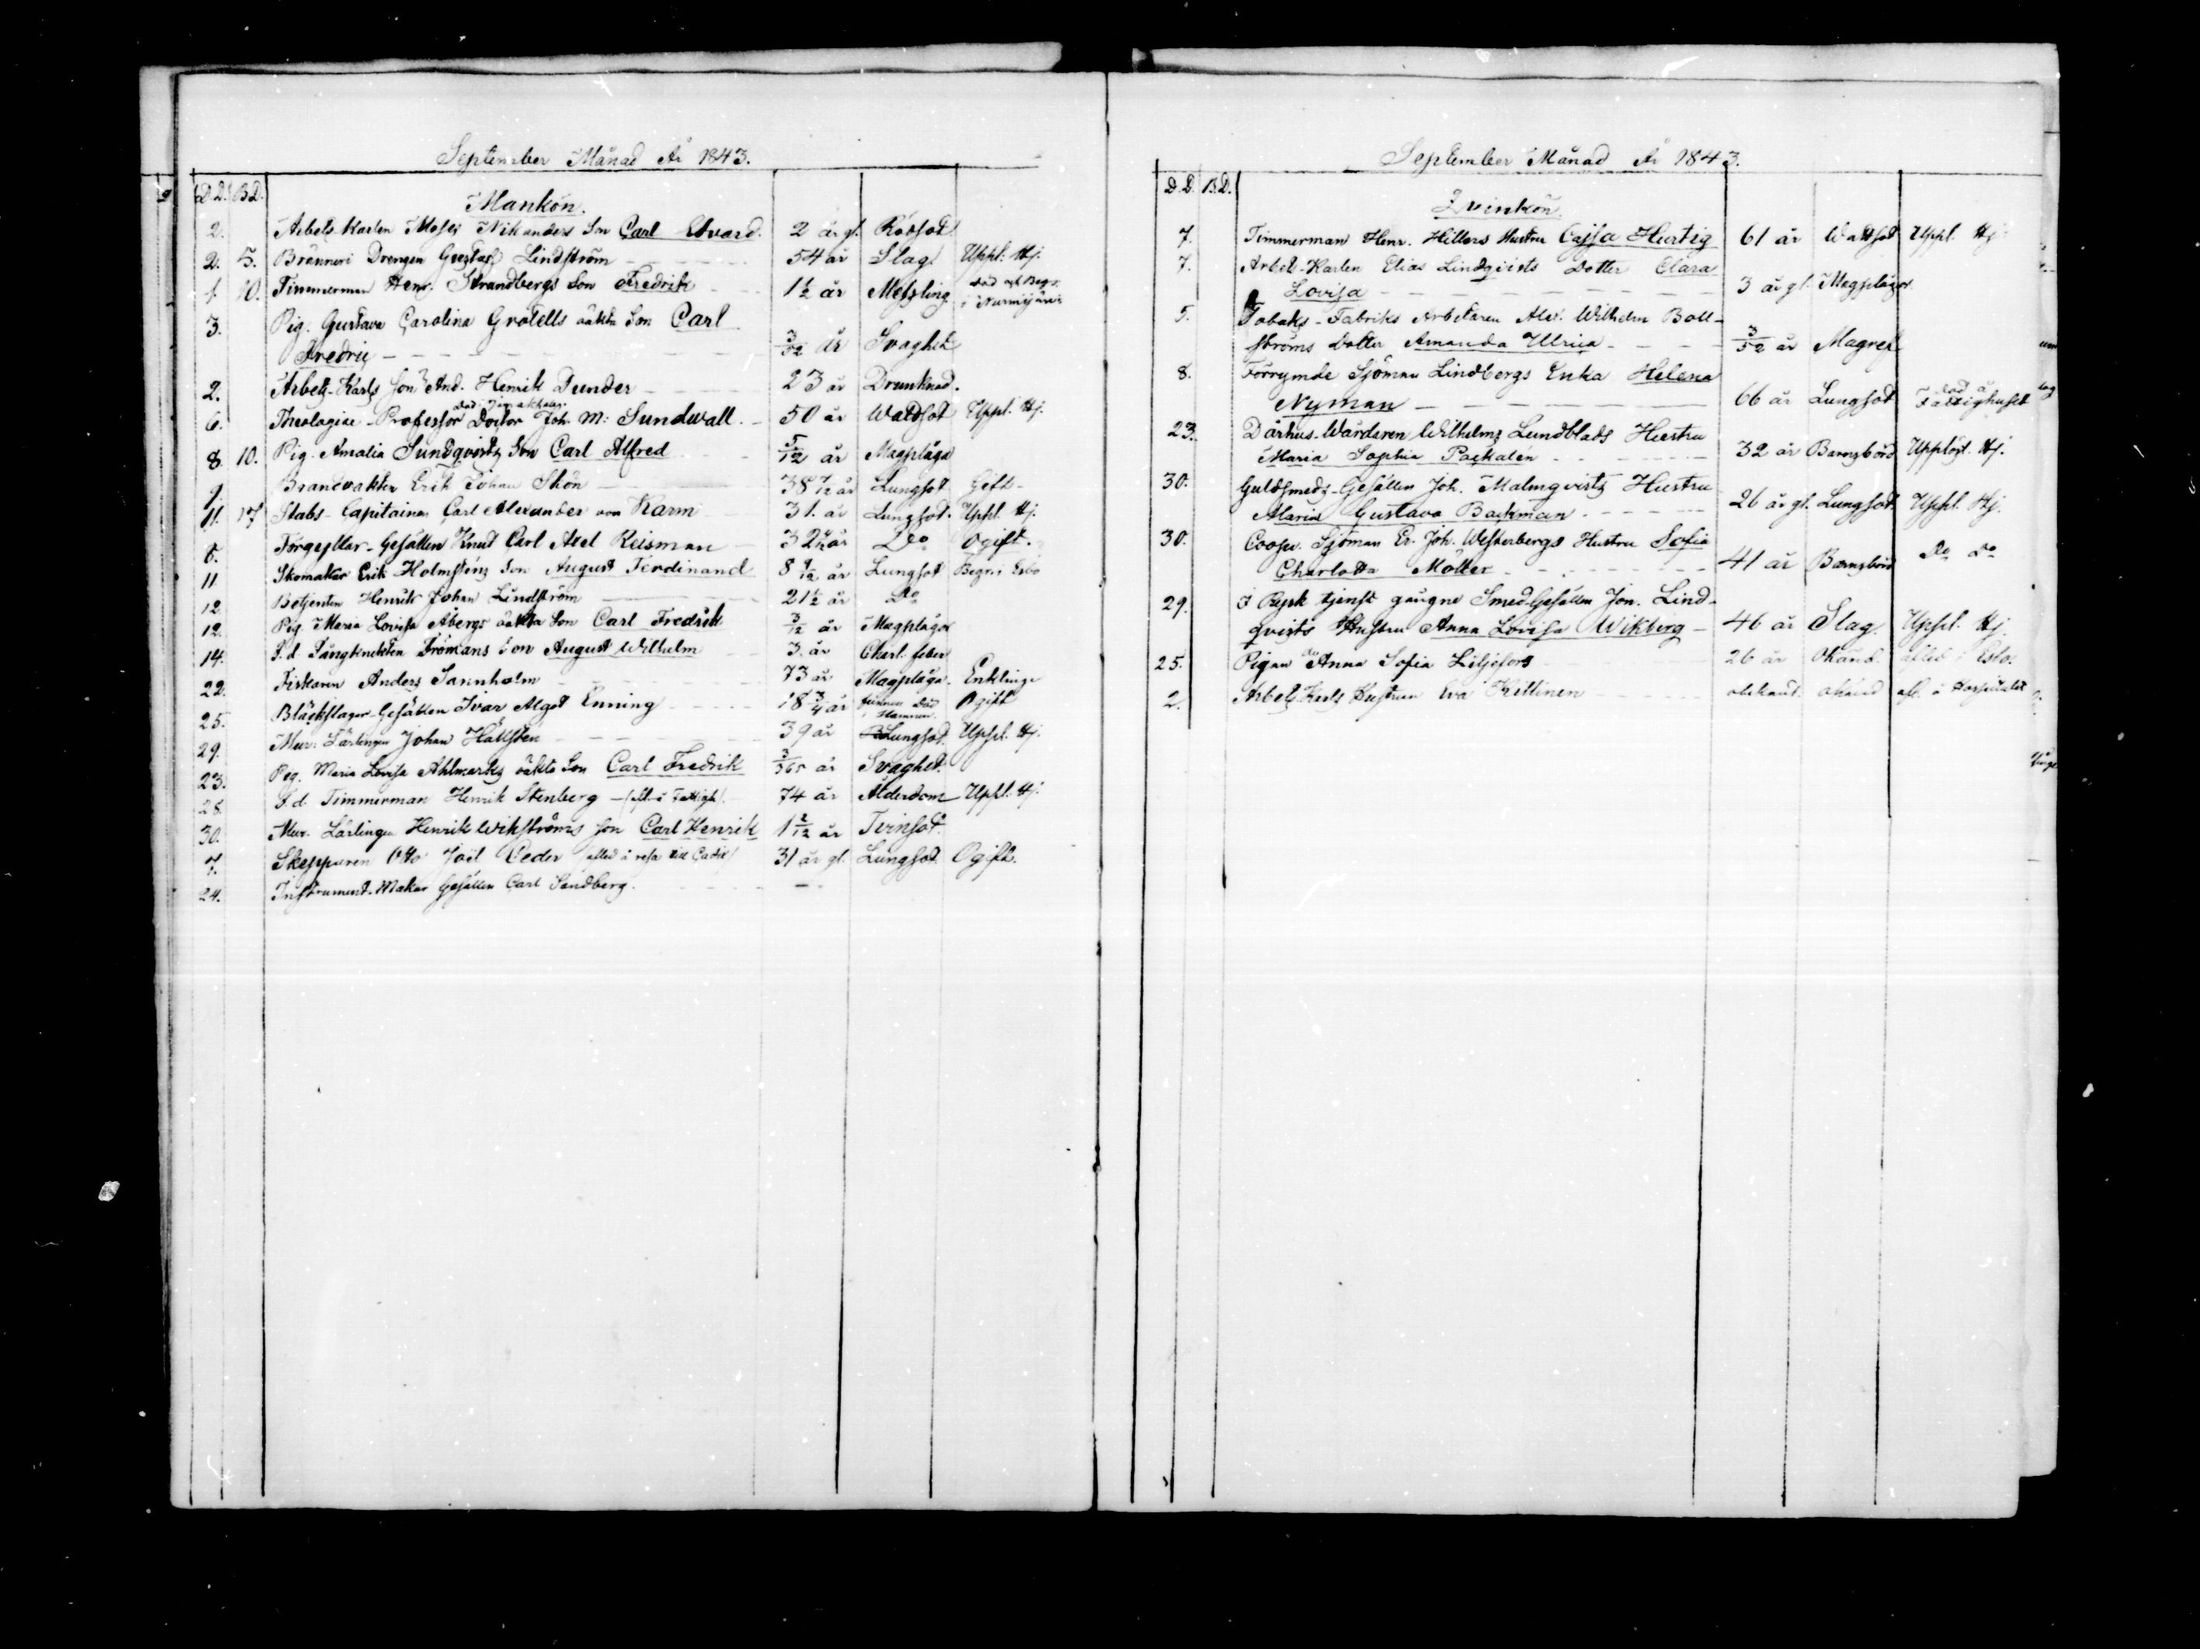 September Månad År 1843.
D.D. B.D.
Mankön.
2. Arbets-Karlen Moses Nikanders Son Carl Edvard. 2 år gl. Rödsot
2. 5. Bränneri Drengen Gustaf Lindström 54 år Slag Uppl. Hj.
1 10. Timmerman Henr. Strandbergs Son Fredrik 1 1/2 år Messling Död och Begr.
3. Pig. Gustava Carolina Grotells oäkta Son Carl
Fredric 3/52 år Svaghet
2. Arbets-Karls Son And. Henrik Dunder 23 år Drunknad.
6. Theologiae-Professor Doctor Joh. M: Sundwall 50 år Wattsot Uppl. Hj.
8 10. Pig. Amalia Sundqvists Son Carl Alfred 5/12 år Magplåga
9. Brandvakten Erik Johan Skön 38 7/12 år Lungsot Gift
11. 17 Stabs-Capitainen Carl Alexander von Karm 31. år Lungsot. Uppl. Hj.
5. Förgyllar-Gesällen Knut Carl Axel Reisman Do Ogift.
11 Skomakar Erik Holmstens Son August Ferdinand Lungsot Begr. i Esbo
12. Betjenten Henrik Johan Lindström 21 1/2 år Do
12. Pig. Maria Lovisa Åbergs oäkta Son Carl Fredrik 3/12 år Magplågor
14. F.d. Fångknekten Frömans Son August Wilhelm 3. år Charl. feber
22. Fiskaren Anders Sannholm 73 år Magplåga. Enkling
25. Bläckslagar-Gesällen Ivar Algot Enning 18 3/4 år funnen död i Hamnen. Ogift
29. Mur. Lärlingen Johan Hällsten 39 år Lungsot. Uppl. Hj.
23. Pig. Maria Lovisa Ahlmarks oäkta Son Carl Fredrik 3/365 år Svaghet.
28. F.d. Timmerman Henrik Stenberg (afl. å Fattigh) 74 år Ålderdom Uppl. Hj.
30. Mur. Lärlingen Henrik Wikströms Son Carl Henrik 1 2/12 år Tvinsot.
7. Skepparen Otto Joel Ceder (afled å resa till Cadix) 31 år gl. Lungsot. Ogift.
24. Instrument-Makar Gesällen Carl Sandberg.
September Månad År 1843.
D.D. B.D.
Qvinkön
7. Timmerman Henr. Hillers Hustru Cajsa Hurtig 61 år Wattsot Uppl. Hj.
7. Arbets-Karlen Elias Lindqvists Dotter Clara
Lovisa 3 år gl. Magplågor
5. Tobaks-Fabriks Arbetaren Alex. Wilhelm Boll-
ströms Dotter Amanda Ulrica 3/52 år Magref
8. Förrymde Sjöman Lindbergs Enka Helena
Nyman 66 år Lungsot Död å Fattighuset
23. Dårhus-Wårdaren Wilhelms Lundblads Hustru
Maria Sophia Packalen 32 år Barnsbörd Upplöst. Hj.
30. Guldsmeds-Gesällen Joh. Malmqvists Hustru
Maria Gustava Backman 26 år gl. Lungsot Uppl. Hj.
30. Sjöman Er. Joh. Westerbergs Hustru Sofia
Charlotta Möller 41 år Barnsbörd Do Do
29. I Rysk tjenst gångne Smed-Gesällen Jon. Lind-
qvists Hustru Anna Lovisa Wikberg 46 år Slag. Uppl. Hj.
25. Pigan Anna Sofia Liljefors 26 år Okänd. afled i Esbo.
2. Arbets Karls Hustrun Eva Kittinen obekant. okänd afl. å Hospitalet